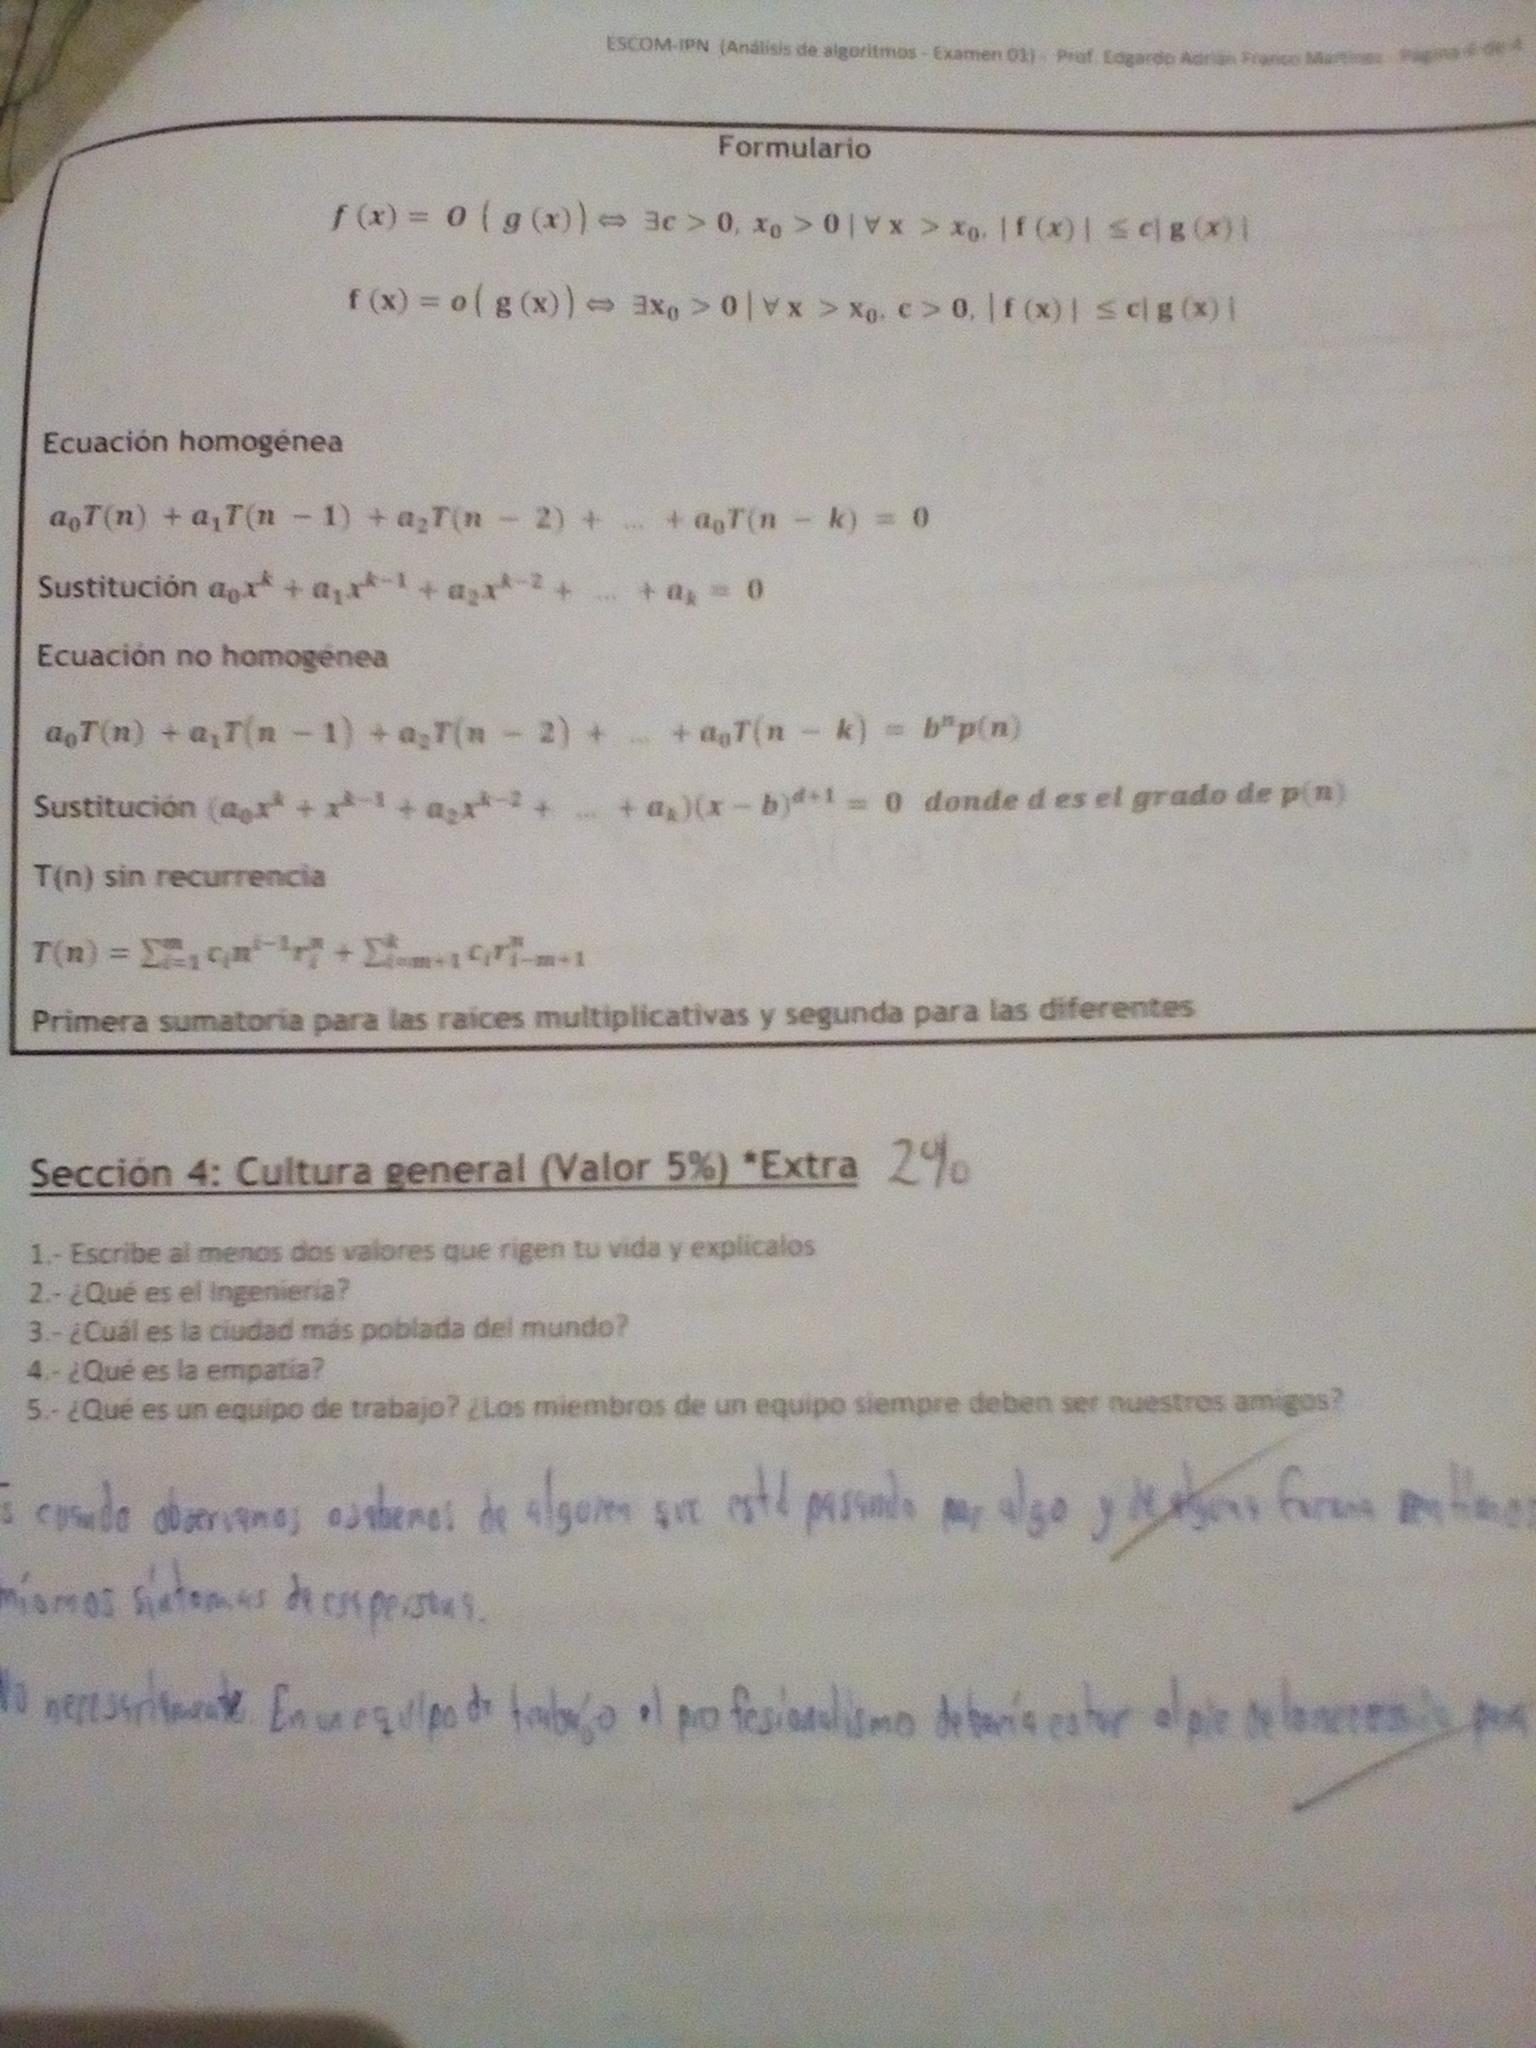 ESCOM-IPN (Análisis de algoritmos - Examen 01) - Prof. Edgardo Adrián Franco Martínez Página 4 de 4
Formulario
f (x) = O ( g (x)) ⇔ ∃c > 0, x₀ > 0 | ∀ x > x₀, | f (x) | ≤ c| g (x) |
f (x) = o( g (x)) ⇔ ∃x₀ > 0 | ∀ x > x₀, c > 0, | f (x) | ≤ c| g (x) |
Ecuación homogénea
a₀T(n) + a₁T(n − 1) + a₂T(n − 2) + ... + a₀T(n − k) = 0
Sustitución a₀xᵏ + a₁xᵏ⁻¹ + a₂xᵏ⁻² + ... + aₖ = 0
Ecuación no homogénea
a₀T(n) + a₁T(n − 1) + a₂T(n − 2) + ... + a₀T(n − k) = bⁿp(n)
Sustitución (a₀xᵏ + xᵏ⁻¹ + a₂xᵏ⁻² + ... + aₖ)(x − b)ᵈ⁺¹ = 0 donde d es el grado de p(n)
T(n) sin recurrencia
T(n) = ∑ᵢ₌₁ᵐ cᵢnⁱ⁻¹rᵢⁿ + ∑ᵢ₌ₘ₊₁ᵏ cᵢrⁿᵢ₋ₘ₊₁
Primera sumatoria para las raíces multiplicativas y segunda para las diferentes
Sección 4: Cultura general (Valor 5%) *Extra 2%
1.- Escribe al menos dos valores que rigen tu vida y explícalos
2.- ¿Qué es el Ingeniería?
3.- ¿Cuál es la ciudad más poblada del mundo?
4.- ¿Qué es la empatía?
5.- ¿Qué es un equipo de trabajo? ¿Los miembros de un equipo siempre deben ser nuestros amigos?
cuando observamos o sabemos de alguien que está pasando por algo y de alguna forma
síntomas de esa persona.
No necesariamente. En un equipo de trabajo el profesionalismo debería estar al pie de la